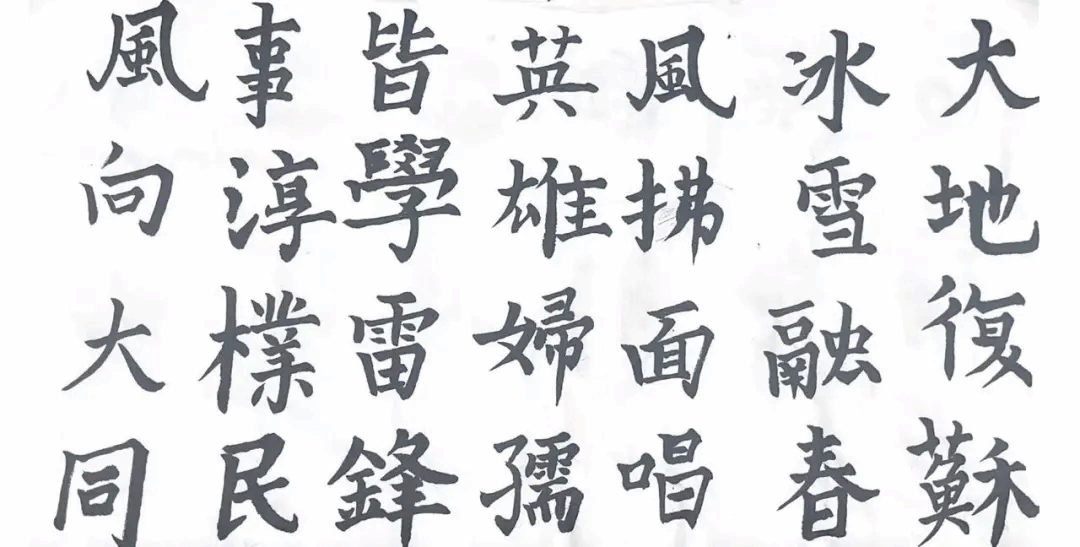 大地復蘇
冰雪融春
風拂面唱
英雄婦孺
皆學雷鋒
事淳樸民
風向大同